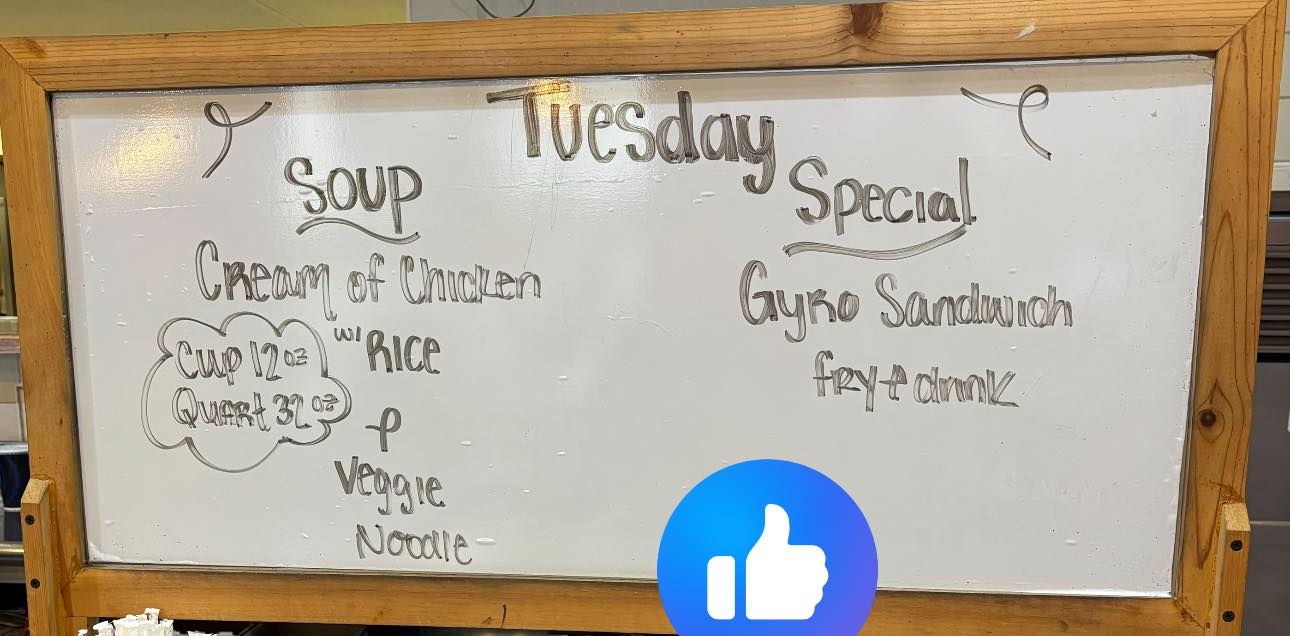 Tuesday
Soup
Cream of Chicken
w/ Rice
Cup 12 oz
Quart 32 oz
+
Veggie
Noodle
Special
Gyro Sandwich
fry + drink